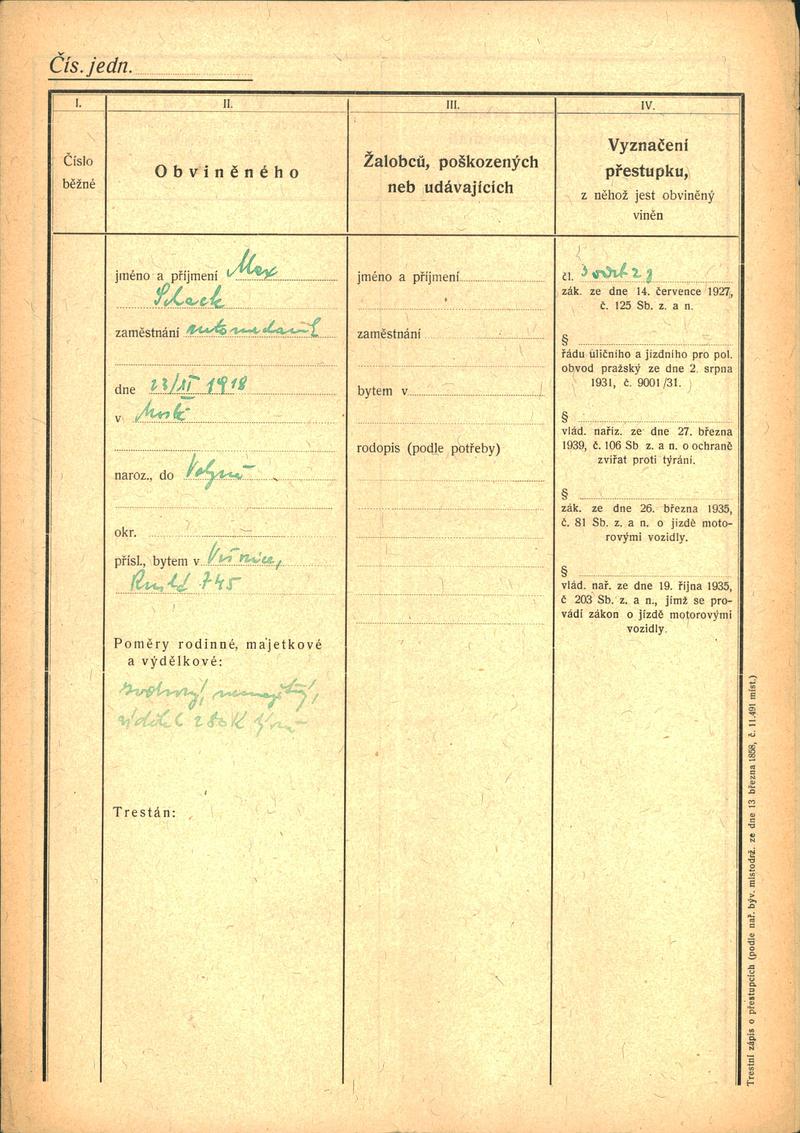 Čís. jedn.
I.
II.
III.
IV.
Číslo
běžné
Obviněného
Žalobců, poškozených
neb udávajících
Vyznačení
přestupku,
z něhož jest obviněný
viněn
jméno a příjmení Max
zaměstnání
dne 23/II 1918
v Mostě
naroz., do Volyně
okr.
přísl., bytem v
745
Poměry rodinné, majetkové
a výdělkové:
svobodný, nemajetný,
Trestán:
jméno a příjmení
zaměstnání
bytem v
rodopis (podle potřeby)
čl. 3
zák. ze dne 14. července 1927,
č. 125 Sb. z. a n.
§
řádu uličního a jízdního pro pol.
obvod pražský ze dne 2. srpna
1931, č. 9001/31.
§
vlád. naříz. ze dne 27. března
1939, č. 106 Sb z. a n. o ochraně
zvířat proti týrání.
§
zák. ze dne 26. března 1935,
č. 81 Sb. z. a n. o jízdě moto-
rovými vozidly.
§
vlád. nař. ze dne 19. října 1935,
č 203 Sb. z. a n., jímž se pro-
vádí zákon o jízdě motorovými
vozidly.
Trestní zápis o přestupcích (podle nař. býv. místodrž. ze dne 13. března 1858, č. 11.491 míst.)